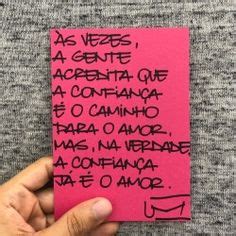 ÀS VEZES,
A GENTE
ACREDITA QUE
A CONFIANÇA
É O CAMINHO
PARA O AMOR,
MAS, NA VERDADE,
A CONFIANÇA
JÁ É O AMOR.